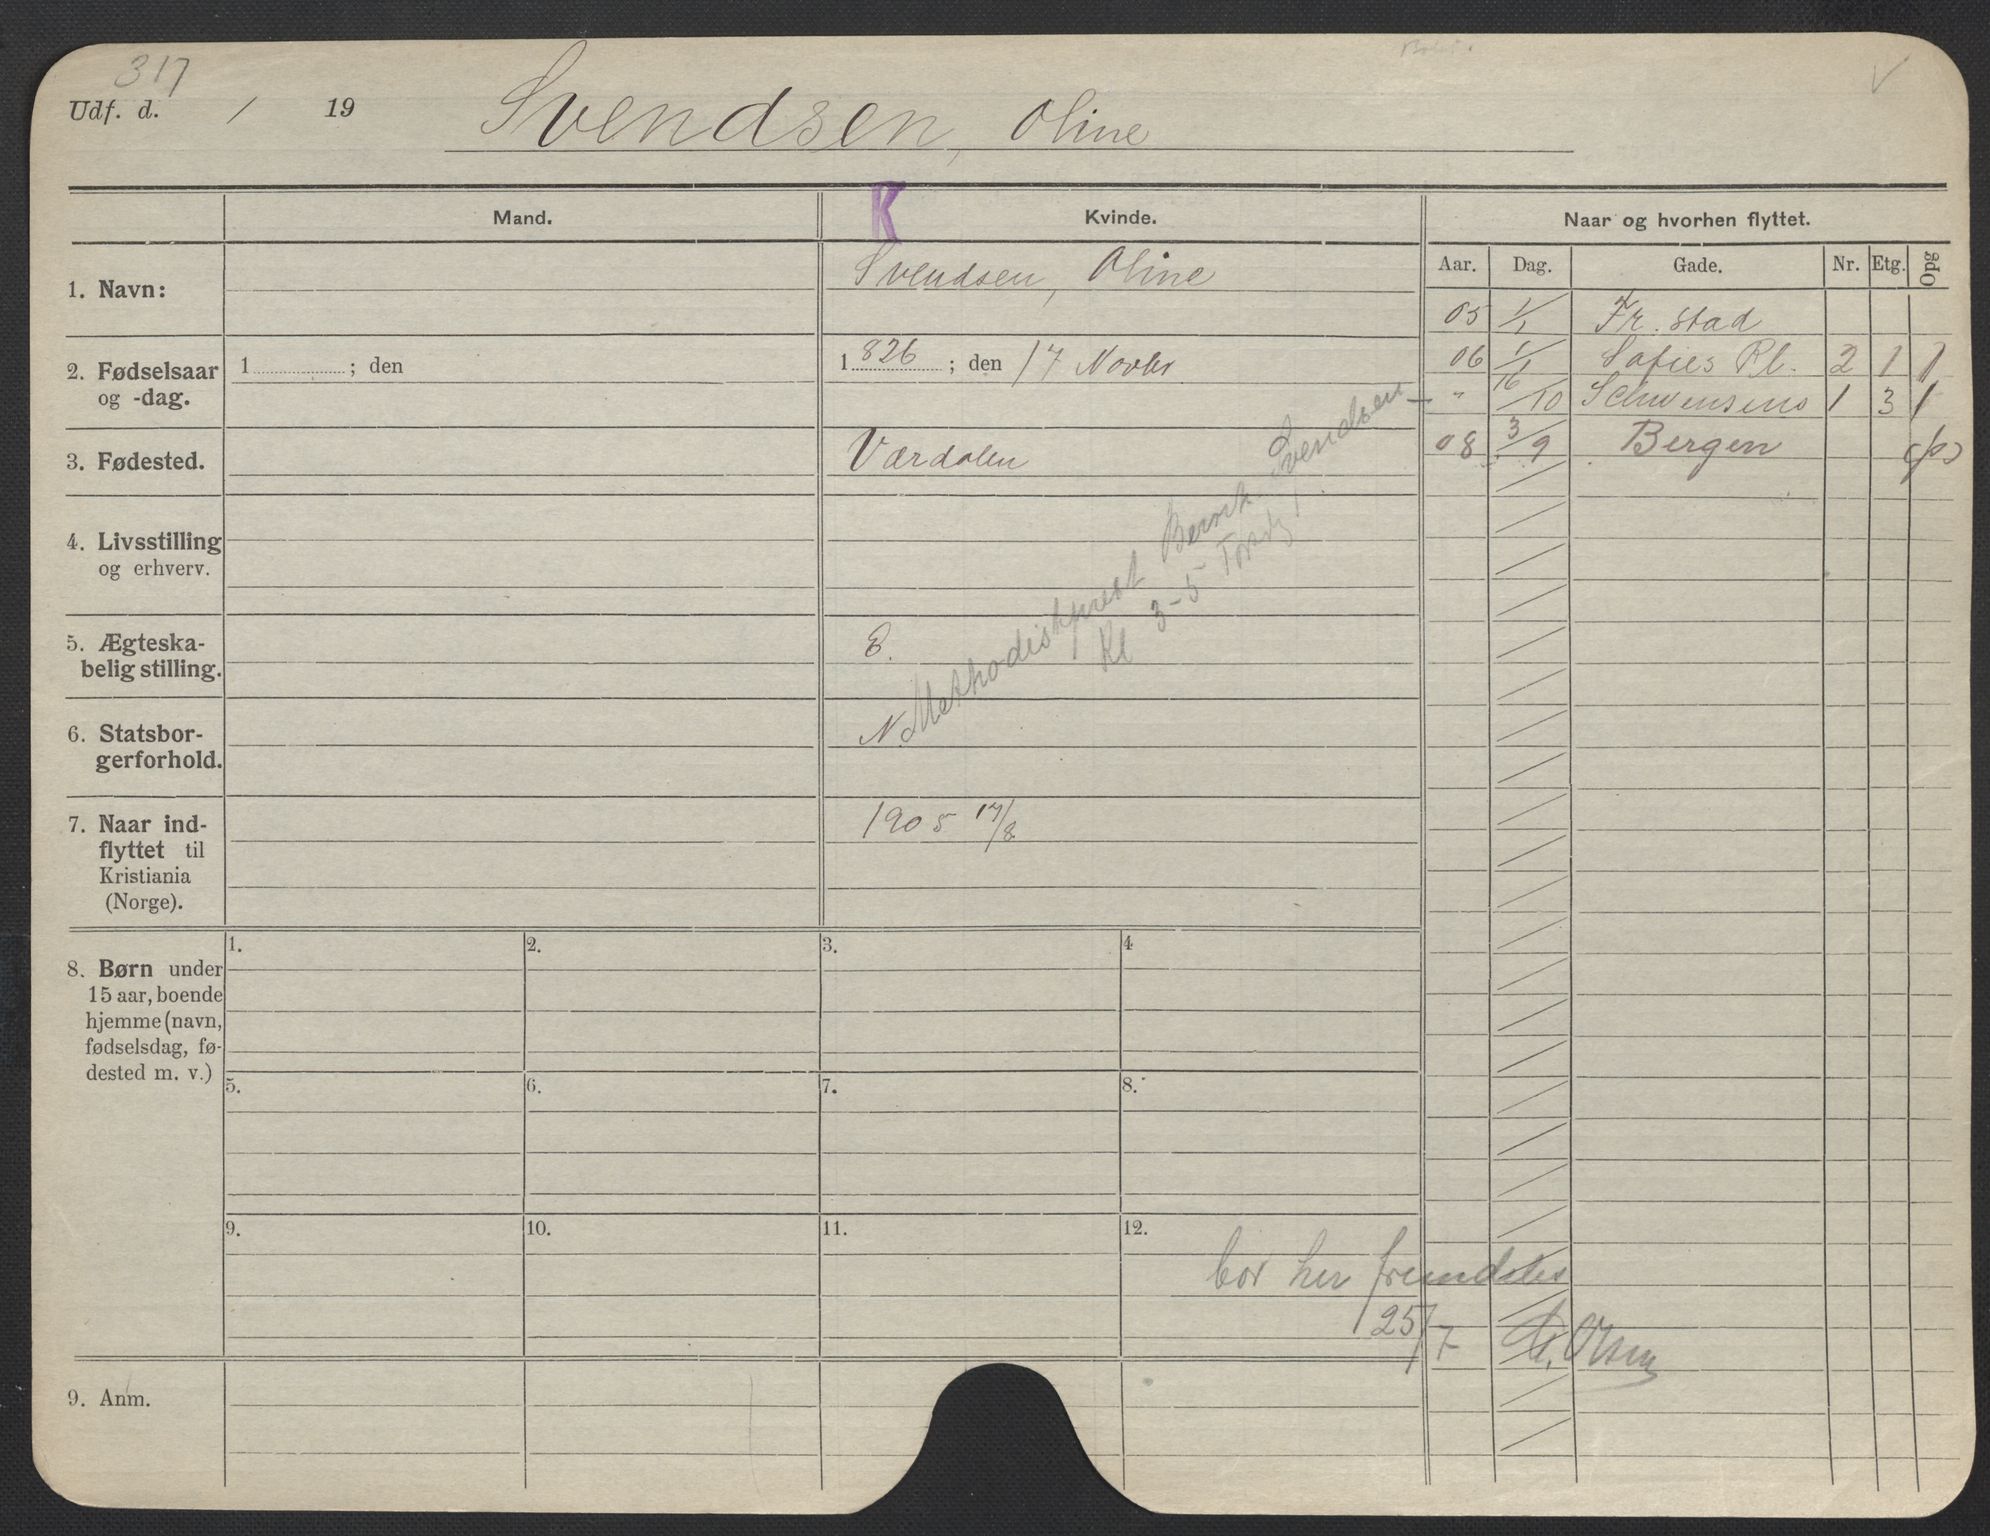 317
Udf. d. / 19 Svendsen, Oline
K
Mand. Kvinde. Naar og hvorhen flyttet.
Aar. Dag. Gade. Nr. Etg. Opg
1. Navn: Svendsen, Oline
05 1/1 Fr.stad
06 1/1 Sofies Pl. 2 1 1
" 16/10 Schwensens 1 3 1
08 3/9 Bergen
2. Fødselsaar og -dag. 1 ; den 1826 ; den 17 Novbr
3. Fødested. Værdalen
4. Livsstilling og erhverv.
Methodistprest Bernh. Svendsen
Kl 3-5
5. Ægteska-
belig stilling. E.
6. Statsbor-
gerforhold. N.
7. Naar ind-
flyttet til
Kristiania
(Norge). 1905 17/8
8. Børn under
15 aar, boende
hjemme (navn,
fødselsdag, fø-
dested m. v.)
1. 2. 3. 4
5. 6. 7. 8.
9. 10. 11. 12.
bor her fremdeles
25/7 Olsen
9. Anm.